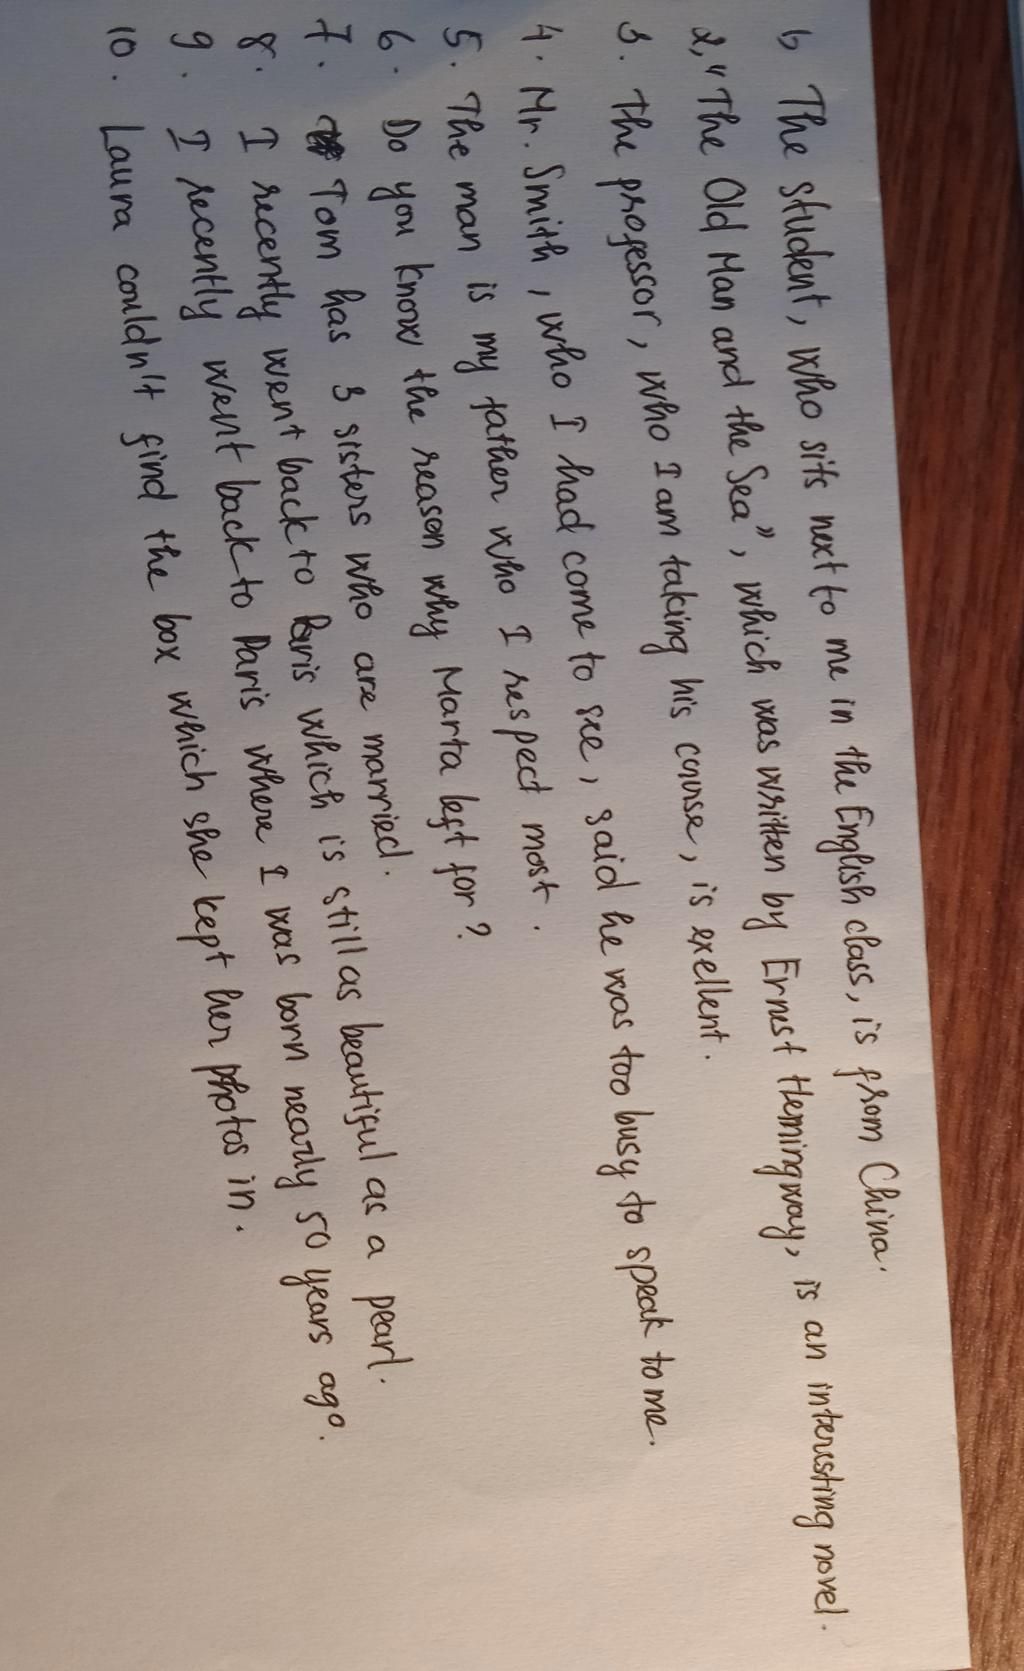 1, The student, who sits next to me in the English class, is from China.
2, "The Old Man and the Sea", which was written by Ernest Hemingway, is an interesting novel.
3. The professor, who I am taking his course, is exellent.
4. Mr. Smith, who I had come to see, said he was too busy to speak to me.
5. The man is my father who I respect most.
6. Do you know the reason why Marta left for?
7. Tom has 3 sisters who are married.
8. I recently went back to Paris which is still as beautiful as a pearl.
9. I recently went back to Paris where I was born nearly 50 years ago.
10. Laura couldn't find the box which she kept her photos in.